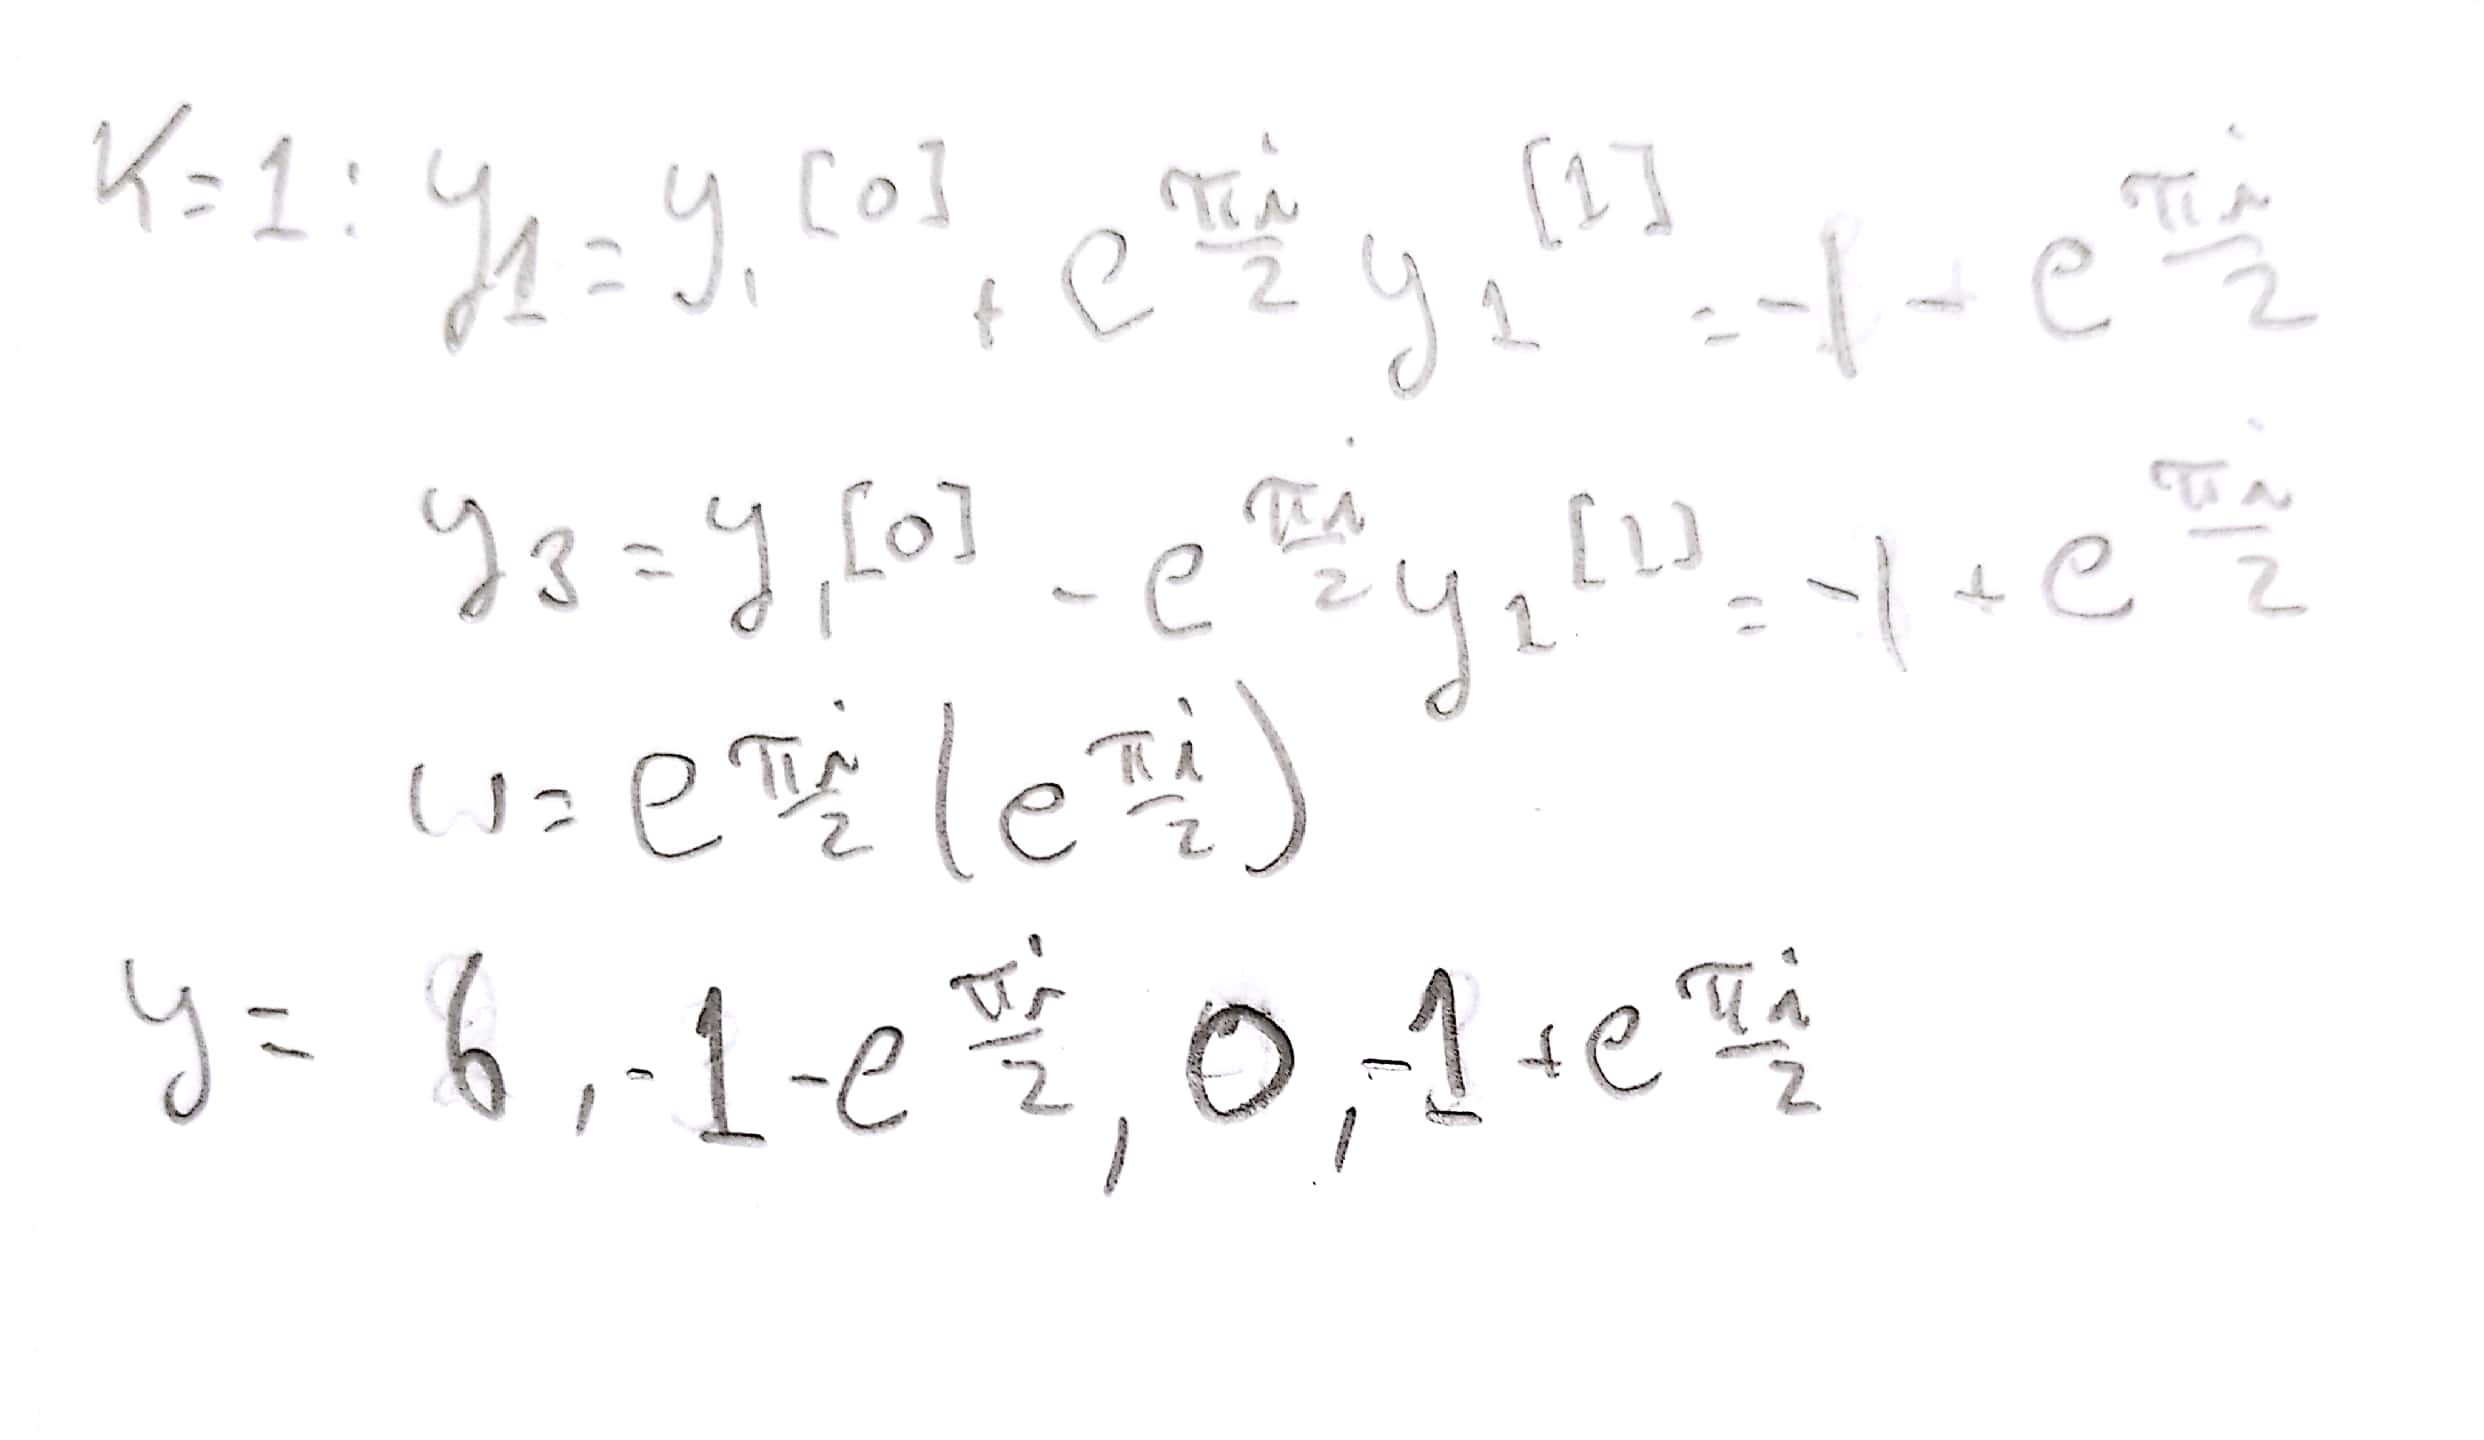 K=1: y₁ = y₁^[0] + e^(πi/2) y₁^[1] = -1 - e^(πi/2)
y₃ = y₁^[0] - e^(πi/2) y₁^[1] = -1 + e^(πi/2)
ω = e^(πi/2) (e^(πi/2))
y = 6, -1 - e^(πi/2), 0, -1 + e^(πi/2)